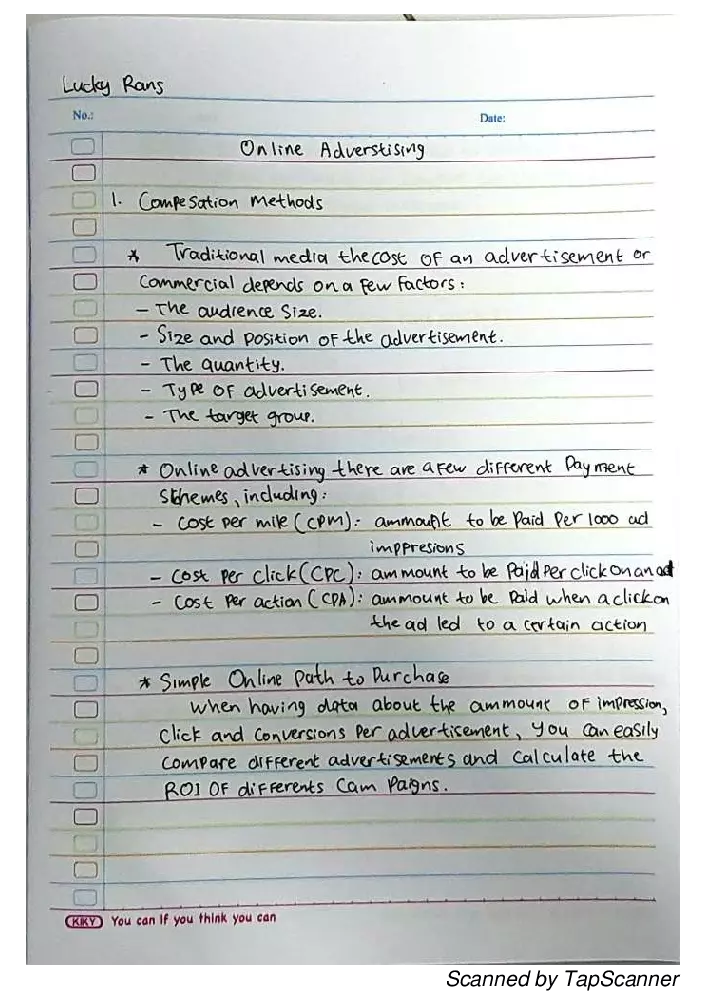 Lucky Rans
No.:
Date:
Online Adverstising
1. Compesation methods
* Traditional media the cost of an advertisement or
Commercial depends on a few factors :
- The audience Size.
- Size and position of the advertisement.
- The quantity.
- Type of advertisement.
- The target group.
* Online advertising there are a few different Payment
Schemes, including :
- Cost per mile (CPM) : ammount to be Paid Per 1000 ad
imppresions
- Cost per click (CPC) : ammount to be Paid Per click on an ad
- Cost Per action (CPA) : ammount to be Paid when a click on
the ad led to a certain action
* Simple Online Path to Purchase
When having data about the ammount of impression,
Click and Conversions Per advertisement, you can easily
Compare different advertisements and calculate the
ROI OF differents Cam Paigns.
KIKY You can if you think you can
Scanned by TapScanner